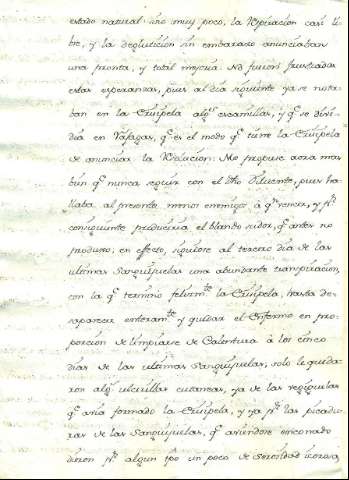 estado natural sino muy poco, la respiracion casi li-
bre, y la degluticion sin embarazo anunciaban
una pronta, y total mejoria. No fueron frustradas
estas esperanzas, pues al dia siguiente ya se nota-
ban en la Erisipela algs. escamillas, y qe. se divi-
dia en Vejigas, qe. es el modo qe. tiene la Erisipela
de anunciar la resolucion. Me propuse aora mas
bien qe. nunca seguir con el dho Diluente, pues ha-
llaba al presente menor enemigo à qn. vencer, y pr.
consiguiente produciria el blando sudor, qe. antes no
produxo; en efecto, siguiose al tercero dia de las
ultimas Sanguijuelas una abundante transpiracion,
con la qe. termino felizmte. la Erisipela, hasta de-
saparecer enteramte. y quedar el Enfermo en pro-
porcion de limpiarse de Calentura à los cinco
dias de las ultimas Sanguijuelas, solo le queda-
ron algs. ulcerillas cutaneas, ya de las
qe. avia formado la Erisipela, y ya pr. las picadu-
ras de las Sanguijuelas, qe. aviendose enconado
dieron pr. algun tpo un poco de serosidad icorosa,